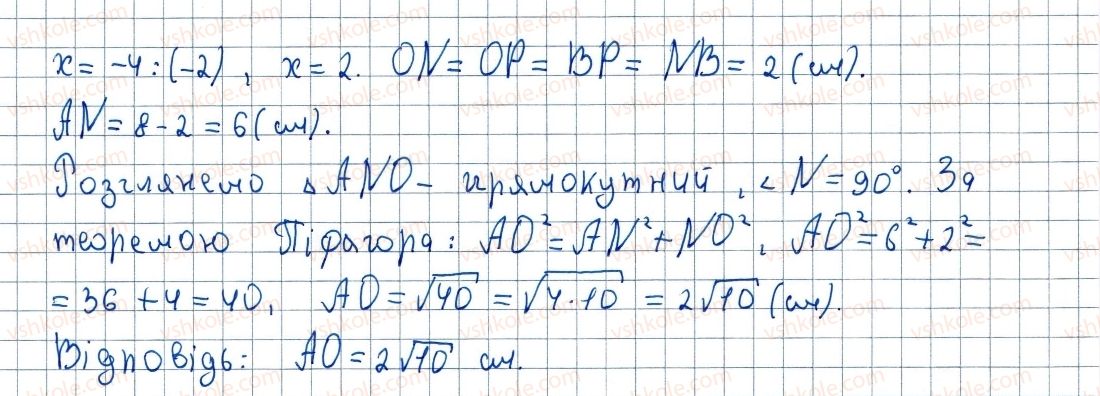 x = -4 : (-2), x = 2. ON = OP = BP = NB = 2 (см).
AN = 8 - 2 = 6 (см).
Розглянемо △ ANO - прямокутний, ∠ N = 90°. За
теоремою Піфагора: AO² = AN² + NO², AO² = 6² + 2² =
= 36 + 4 = 40, AO = √40 = √4·10 = 2√10 (см).
Відповідь: AO = 2√10 см.